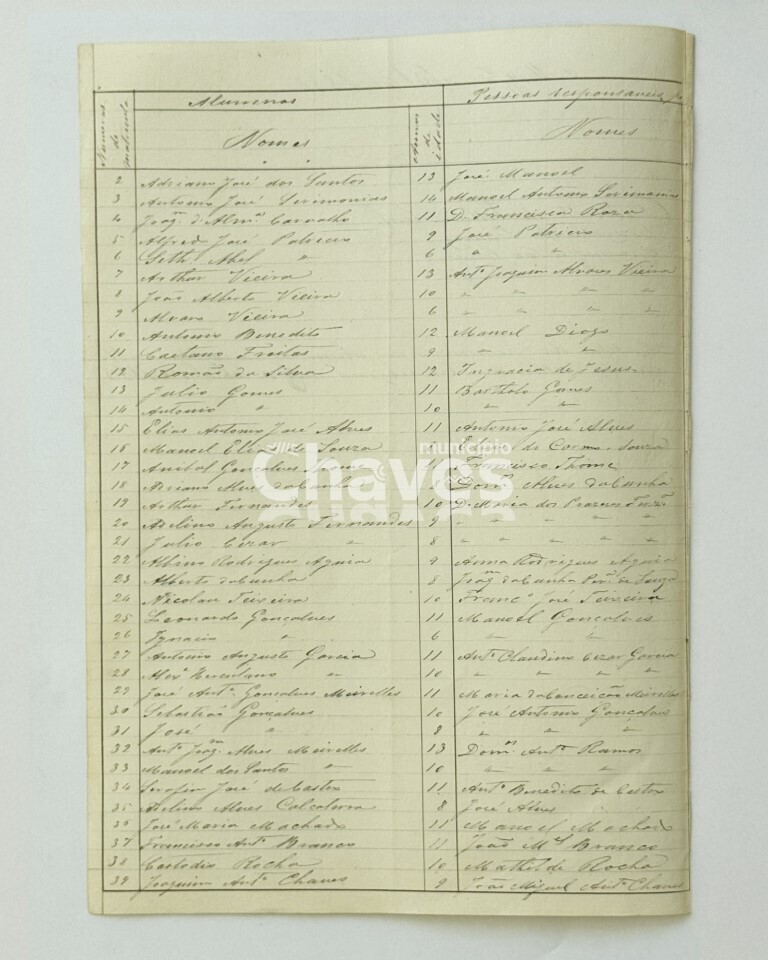 Alumnos Pessoas responsaveis
Numeros de matricula Nomes Annos de idade Nomes
2 Adriano José dos Santos 13 José Manoel
3 Antonio José Serimonias 14 Manoel Antonio Serimonias
4 Joaqm. d'Almda. Carvalho 11 D. Francisca Roza
5 Alfredo José Patricio 9 José Patricio
6 Seth Abel " 6 " "
7 Arthur Vieira 13 Anto. Joaquim Alvares Vieira
8 João Alberto Vieira 10 " " " "
9 Alvaro Vieira 6 " " " "
10 Antonio Benedito 12 Manoel Diogo
11 Caetano Freitas 9 " "
12 Romão da Silva 12 Ingracia de Jesus
13 Julio Gomes 11 Bartholo Gomes
14 Antonio " 10 " "
15 Elias Antonio José Alves 11 Antonio José Alves
16 Manoel Elias de Souza Souza
17 Anibal Gonçalves Francisco Thomé
18 Adriano Alves da Cunha Domos. Alves da Cunha
19 Arthur Fernandes 10 D. Maria dos Prazeres
20 Adelino Augusto Fernandes 9 " " " " "
21 Julio Cezar " 8 " " " " "
22 Albino Rodrigues Aguia 9 Anna Rodrigues Aguia
23 Alberto da Cunha 8 Joaqm. da Cunha de Souza
24 Nicolau Teixeira 10 Franco. José Teixeira
25 Leonardo Gonçalves 11 Manoel Gonçalves
26 Ignacio " 6 " "
27 Antonio Augusto Garcia 11 Anto. Claudino Cezar Garcia
28 Alexe. Herculano " 10 " " " "
29 José Anto. Gonsalves Meirelles 11 Maria da Conceição Meirelles
30 Sebastião Gonçalves 10 José Antonio Gonçalves
31 José " 8 " " "
32 Anto. Joaqm. Alves Meirelles 13 Domos. Anto. Ramos
33 Manoel dos Santos " 10 " " "
34 Serafim José de Castro 11 Anto. Benedito de Castro
35 Alves Calcaterra 8 José Alves
36 José Maria Machado 11 Manoel Machado
37 Francisco Anto. Branco 11 João Mel. Branco
38 Custodio Rocha 10 Mathilde Rocha
39 Joaquim Anto. Chaves 9 João Miguel Anto. Chaves
município
Chaves